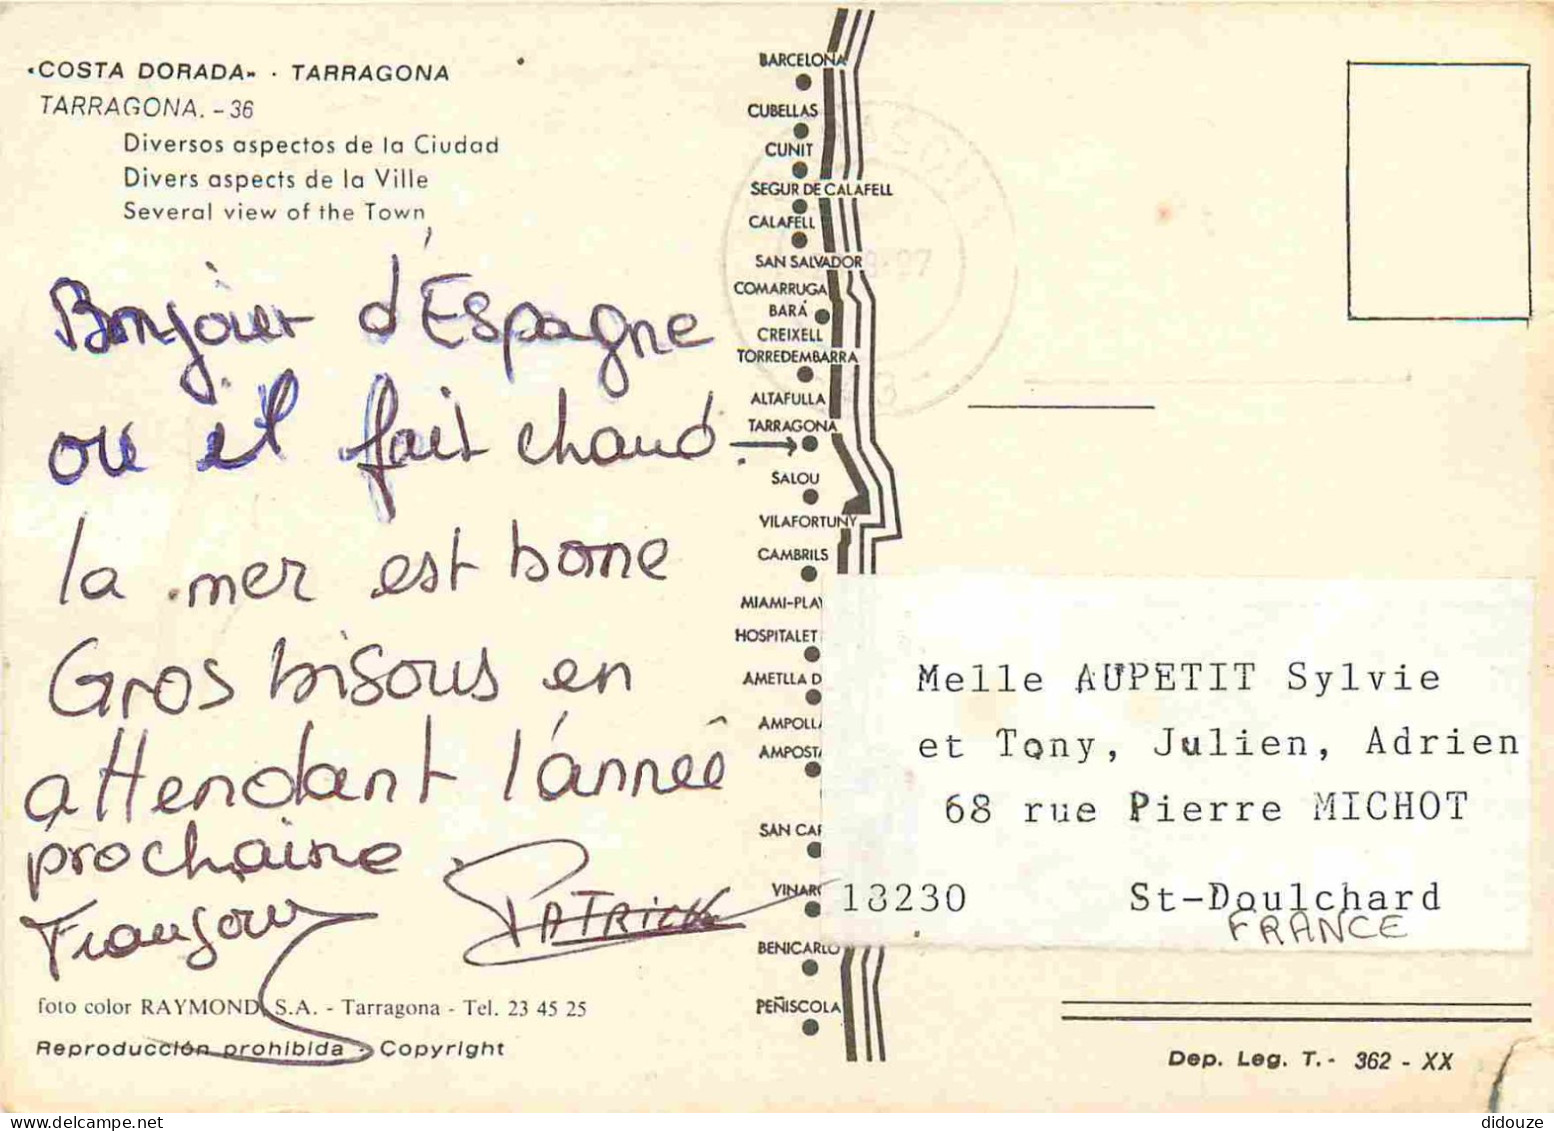 «COSTA DORADA» · TARRAGONA
TARRAGONA. - 36
Diversos aspectos de la Ciudad
Divers aspects de la Ville
Several view of the Town
Bonjour d'Espagne
ou il fait chaud.
la mer est bone
Gros bisous en
attendant l'année
prochaine
PATRICK
foto color RAYMOND, S.A. - Tarragona - Tel. 23 45 25
Reproducción prohibida - Copyright
BARCELONA
CUBELLAS
CUNIT
SEGUR DE CALAFELL
CALAFELL
SAN SALVADOR
COMARRUGA
BARÁ
CREIXELL
TORREDEMBARRA
ALTAFULLA
TARRAGONA
SALOU
VILAFORTUNY
CAMBRILS
MIAMI-PLAY
HOSPITALET
AMETLLA D
AMPOLLA
AMPOSTA
SAN CAR
VINARO
BENICARLO
PEÑISCOLA
Melle AUPETIT Sylvie
et Tony, Julien, Adrien
68 rue Pierre MICHOT
18230 St-Doulchard
FRANCE
Dep. Leg. T. - 362 - XX
didouze